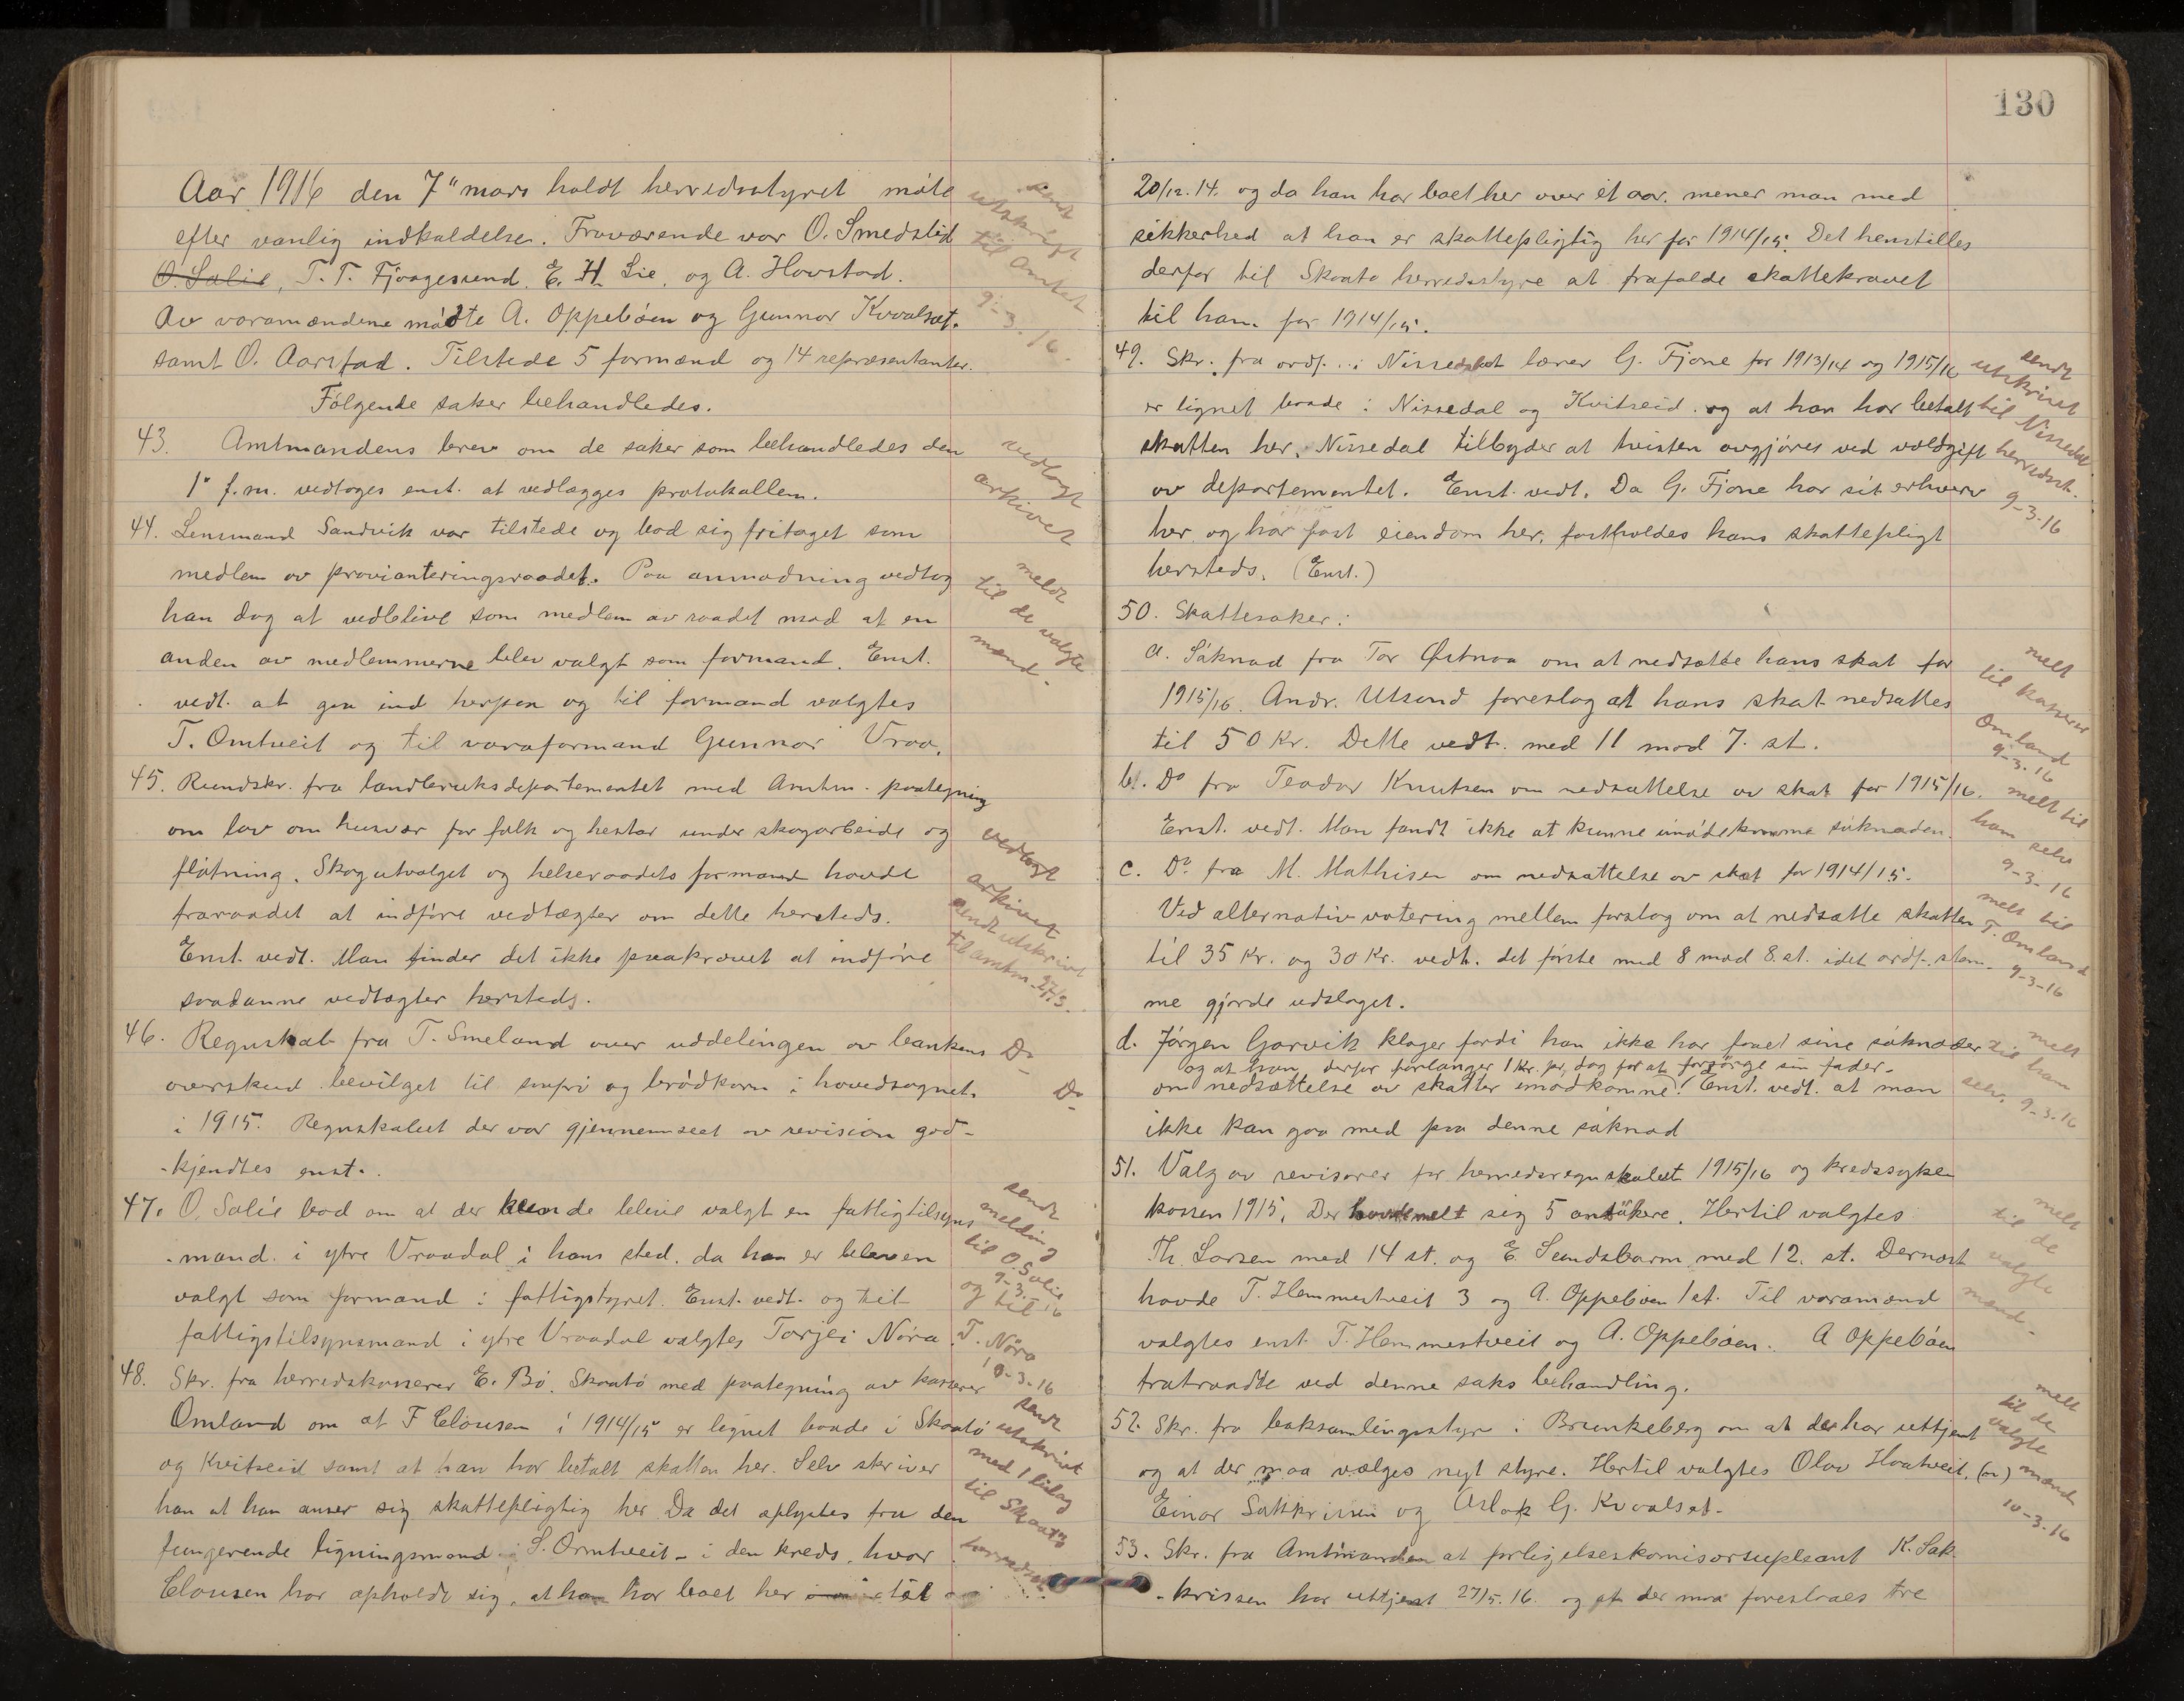 Aar 1916 den 7" mars holdt herredsstyret møte
efter vanlig indkaldelse. Fraværende var O. Smedslid
O. Salie, T. T. Fjaagesund, E. H. Lie, og A. Hovstad.
Av varamændene mødte A. Oppebøen og Gunnar Kvaalset.
samt O. Aarstad. Tilstede 5 formænd og 14 repræsentanter.
Følgende saker behandledes.
sendt
utskrift
til Amtet
9-3.16.
43. Amtmandens brev om de saker som behandledes den
1' f.m. vedtoges enst. at vedlægges protokollen.
vedlagt
arkivet
44. Lensmand Sandvik var tilstede og bad sig fritaget som
medlem av provianteringsraadet. Paa anmodning vedtog
han dog at vedblive som medlem av raadet mod at en
anden av medlemmerne blev valgt som formand. Enst.
vedt. at gaa ind herpaa og til formand valgtes
T. Omtveit og til varaformand Gunnar Vraa.
meldt
til de valgte
mænd.
45. Rundskr. fra landbruksdepartementet med Amtm. paategning
om lov om husvær for folk og hestar under skogarbeide og
fløtning. Skogutvalget og helseraadets formand havde
fraraadet at indføre vedtægter om dette hersteds.
Enst. vedt. Man finder det ikke paakrævet at indføre
saadanne vedtægter hersteds.
vedlagt
arkivet
sendt utskrivt
til amtm. 27/3.
46. Regnskab fra T. Smeland over uddelingen av bankens
overskud bevilget til smpri og brødkorn i hovedsognet
i 1915. Regnskabet der var gjennemseet av revision god-
-kjendtes enst.
Do
Do
47. O. Salie bad om at der kunde blive valgt en fattigtilsyns
-mand i ytre Vraadal i hans sted, da han er bleven
valgt som formand i fattigstyret. Enst. vedt. og til
fattigstilsynsmand i ytre Vraadal valgtes Tarjei Nøra.
sendt
melding
til O. Salie
9-3-16
og til
T. Nøra
10-3-16
48. Skr. fra herredskasserer E. Bø, Skaatø med paategning av kasserer
Omland om at F Clausen i 1914/15 er lignet baade i Skaatø
og Kviteseid samt at han har betalt skatten her. Selv skriver
han at han anser sig skattepligtig her Da det oplystes fra den
fungerende ligningsmand S. Omtveit - i den kreds, hvor
Clausen har opholdt sig, at han har boet her
sendt
utskrivt
med 1 bilag
til Skaatø
herredsst.
130
20/12.14. og da han har boet her over ét aar, mener man med
sikkerhed at han er skattepligtig her for 1914/15. Det henstilles
derfor til Skaatø herredsstyre at frafalde skattekravet
til ham for 1914/15.
49. Skr. fra ordf. i Nissedal at lærer G. Fjone for 1913/14 og 1915/16
er lignet baade i Nissedal og Kvitseid og at han har betalt
skatten her. Nissedal tilbyder at tvisten avgjøres ved voldgift
av departementet. Enst. vedt. Da G. Fjone har sit erhverv
her og har fast eiendom her, fastholdes hans skattepligt
hersteds. (Enst.)
sendt
utskrivt
til Nissedal
herredsst.
9-3-16
50. Skattesaker:
a. Søknad fra Tor Østnaa om at nedsætte hans skat for
1915/16. Andr. Utsund foreslog at hans skat nedsattes
til 50 Kr. Dette vedt. med 11 mod 7. st.
melt
til kasserer
Omland
9-3-16
b. Do fra Teodor Knutsen om nedsættelse av skat for 1915/16.
Enst. vedt. Man fandt ikke at kunne imødekomme søknaden.
melt til
ham selv
9-3-16
c. Do fra M. Mathisen om nedsættelse av skat for 1914/15.
Ved alternativ votering mellem forslag om at nedsætte skatten
til 35 Kr. og 30 Kr. vedt. det første med 8 mod 8. st. idet ordf. stem-
me gjorde udslaget.
melt til
T. Omland
9-3-16
d. Jørgen Garvik klager fordi han ikke har faaet sine søknader
og at han derfor forlanger 1 Kr. pr. dag for at forsørge sin fader.
om nedsættelse av skatter imødkomne. Enst. vedt. at man
ikke kan gaa med paa denne søknad
melt
til ham
selv. 9-3-16
51. Valg av revisorer for herredsregnskabet 1915/16 og kredssyke
kassen 1915. Der havde melt sig 5 ansøkere. Hertil valgtes
Th. Larsen med 14 st. og E. Sundsbarm med 12. st. Dernæst
havde T. Hemmestveit 3 og A. Oppebøen 1 st. Til varamænd
valgtes enst T. Hemmestveit og A. Oppebøen. A Oppebøen
fratraadte ved denne saks behandling.
melt
til de
valgte
mænd.
52. Skr. fra boksamlingsstyre i Brunkeberg om at der har uttjent
og at der maa vælges nyt styre. Hertil valgtes Olav Hvatveit,
Einar Sakkrisen og Aslak G. Kvaalset.
melt
til de
valgte
mænd
10-3-16
53. Skr. fra Amtmanden at forligelseskomisærsupleant K. Sak-
-krissen har uttjent 27/5.16. og at der maa foreslaaes tre